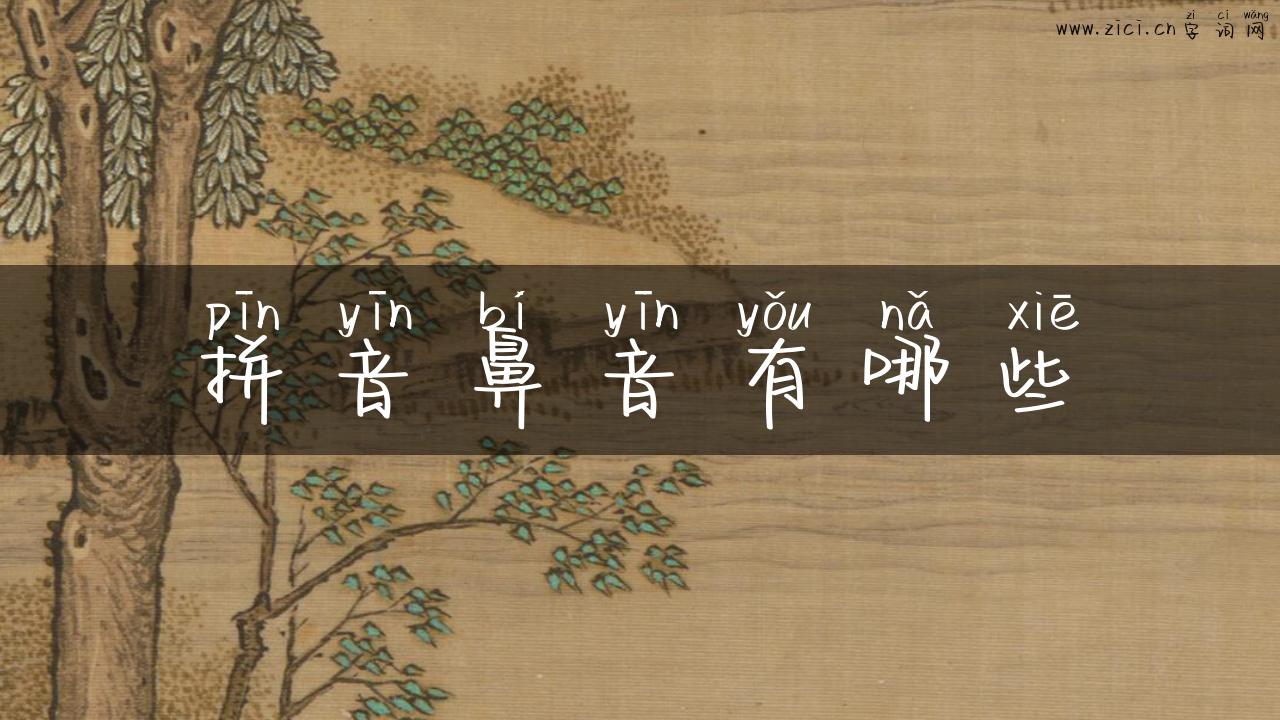 zì cí wǎng
www.zici.cn 字词网
pīn yīn bí yīn yǒu nǎ xiē
拼音鼻音有哪些